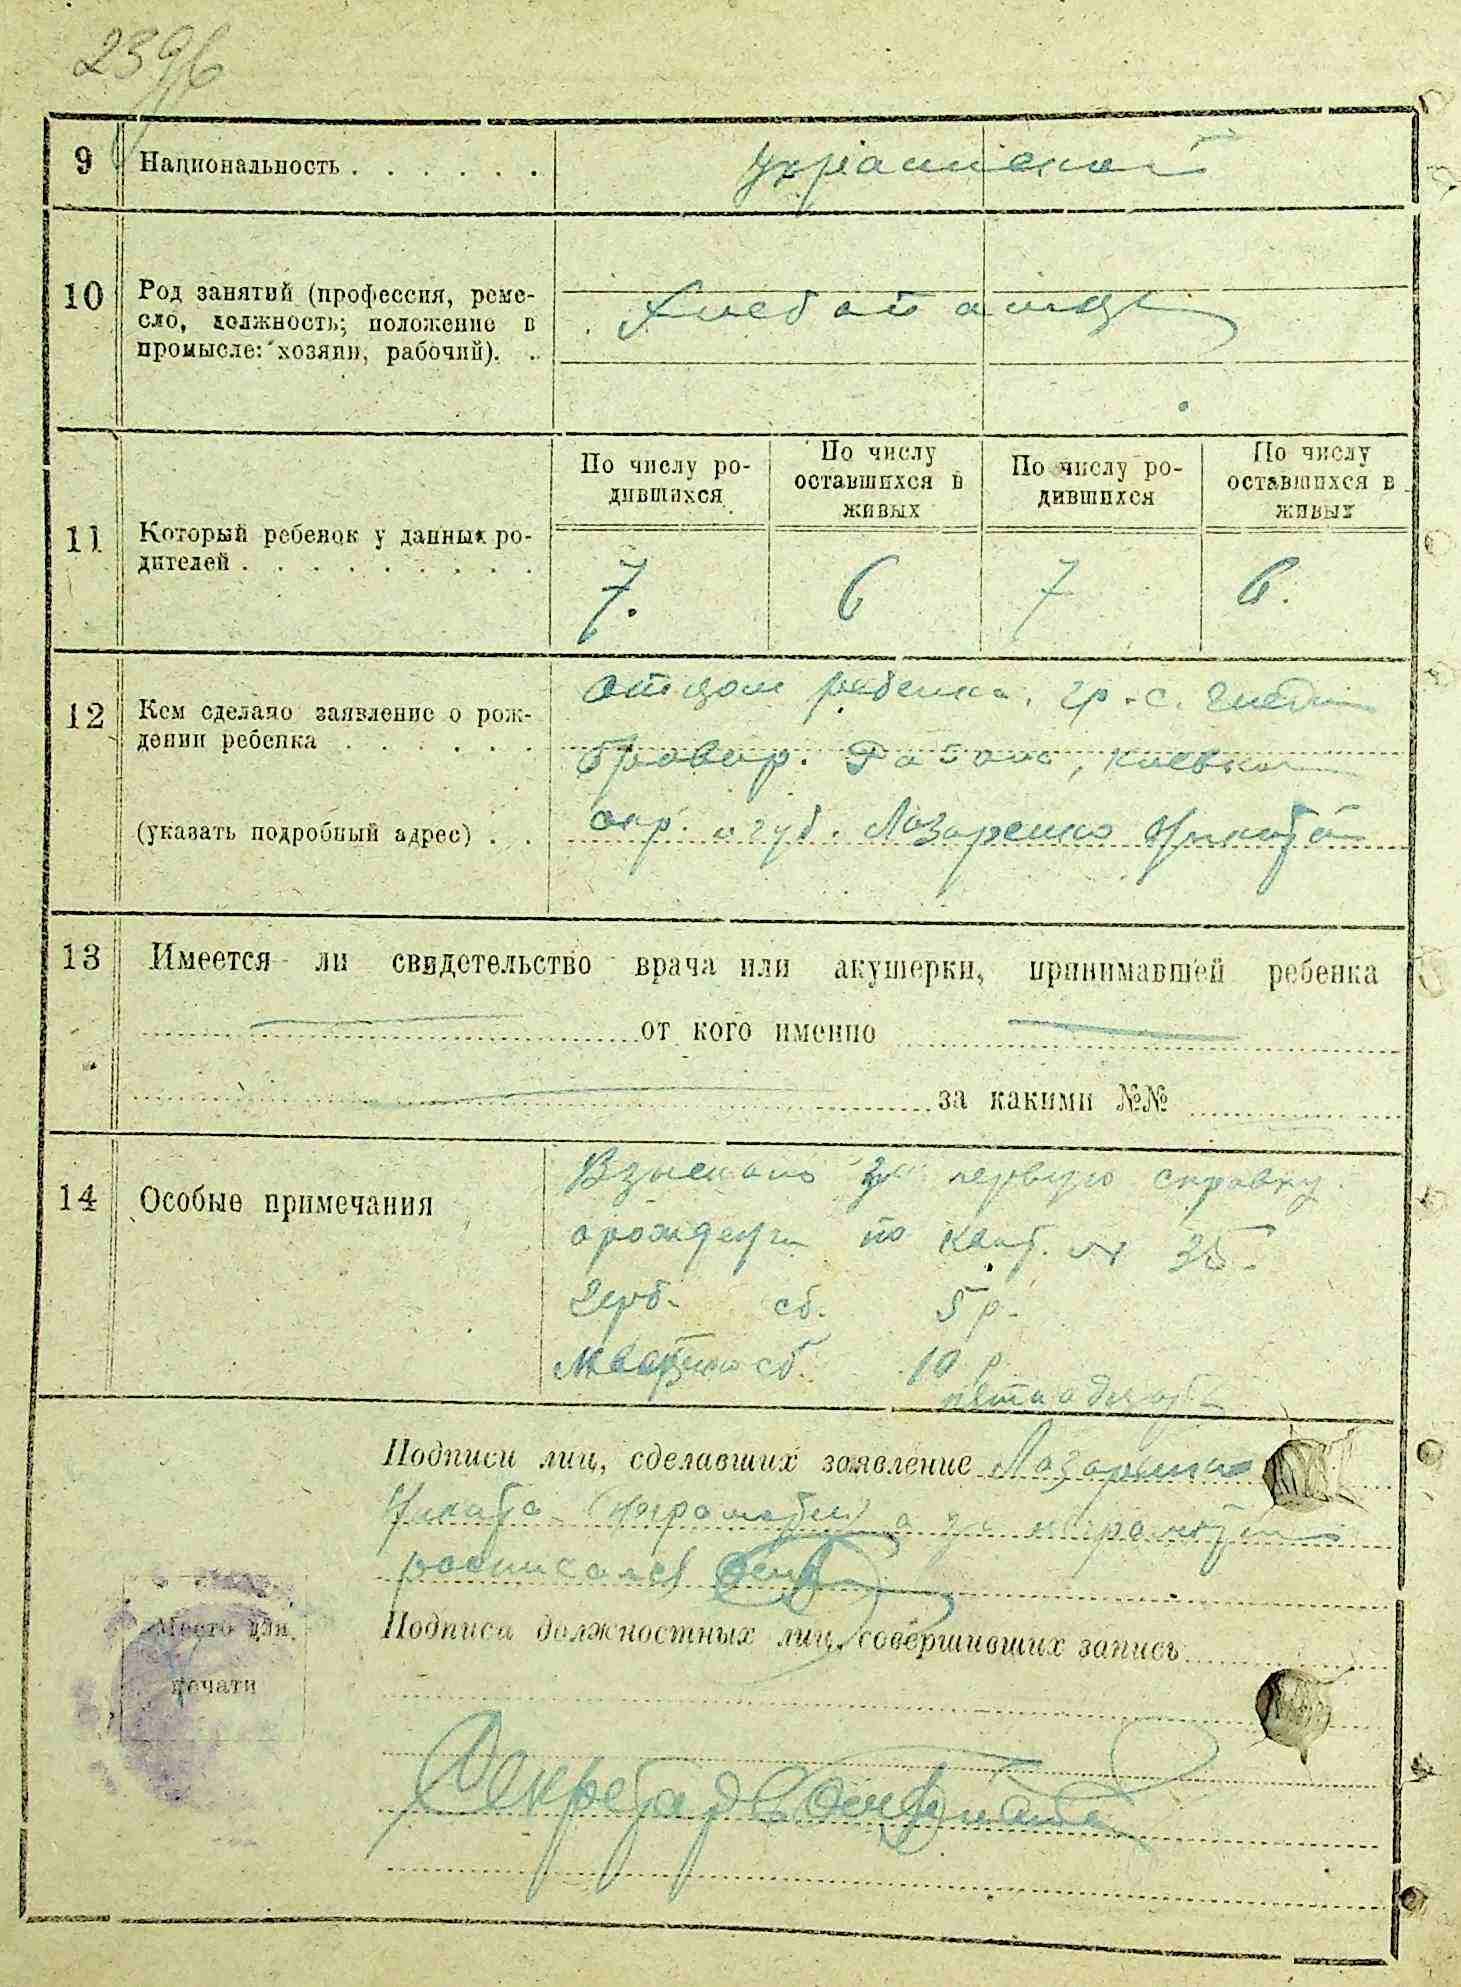 2396
9 Национальность . . . . . . украинской
10 Род занятий (профессия, реме-
сло, должность; положение в
промысле: хозяин, рабочий). . Хлебопашец
11 Который ребенок у данных ро-
дителей . . . . . . . . .
По числу ро-
дившихся
По числу
оставшихся в
живых
По числу ро-
дившихся
По числу
оставшихся в
живых
7. 6 7 6.
12 Кем сделано заявление о рож-
дении ребенка . . . . . .
(указать подробный адрес) . .
отцом ребенка, гр. с.
Бровар. района, киевской
окр. и губ. Лазаренко Никита
13 Имеется ли свидетельство врача или акушерки, принимавшей ребенка
от кого именно
за какими №№
14 Особые примечания
Взыскано за первую справку
о рождении по квит. № 35
Герб. сб. 5 р.
сб. 10 р.
Подписи лиц, сделавших заявление Лазаренко
Никита (неграмотный) а за неграмотн
росписался
Подписи должностных лиц, совершивших запись
Место для
печати
Секретарь